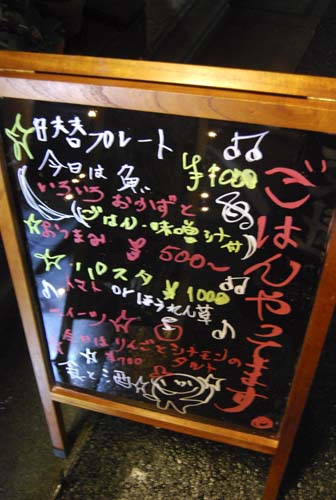 日替プレート
今日は魚 ¥1000
いろいろおかずと
(ごはん・味噌汁付)
おつまみ ¥500~
パスタ
トマト orほうれん草 ¥1000
スイーツ
今日はりんごとシナモンのタルト
¥700
ごはんやってます。